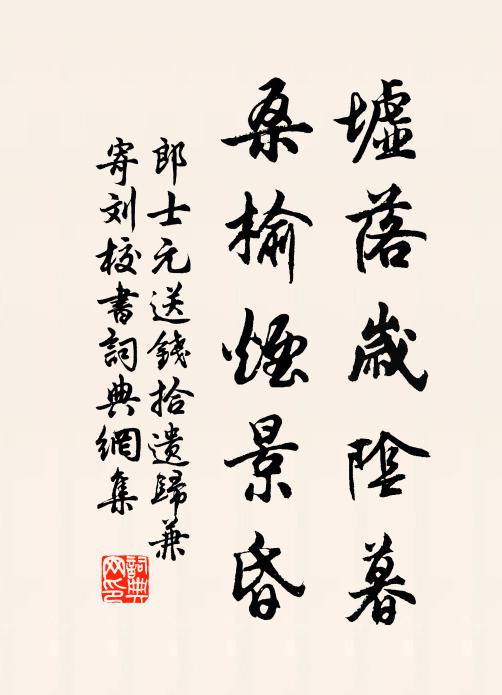 墟落歲陰暮
桑榆煙景昏
郎士元送錢拾遺歸兼
寄刘校書詞典網集
詞典网印